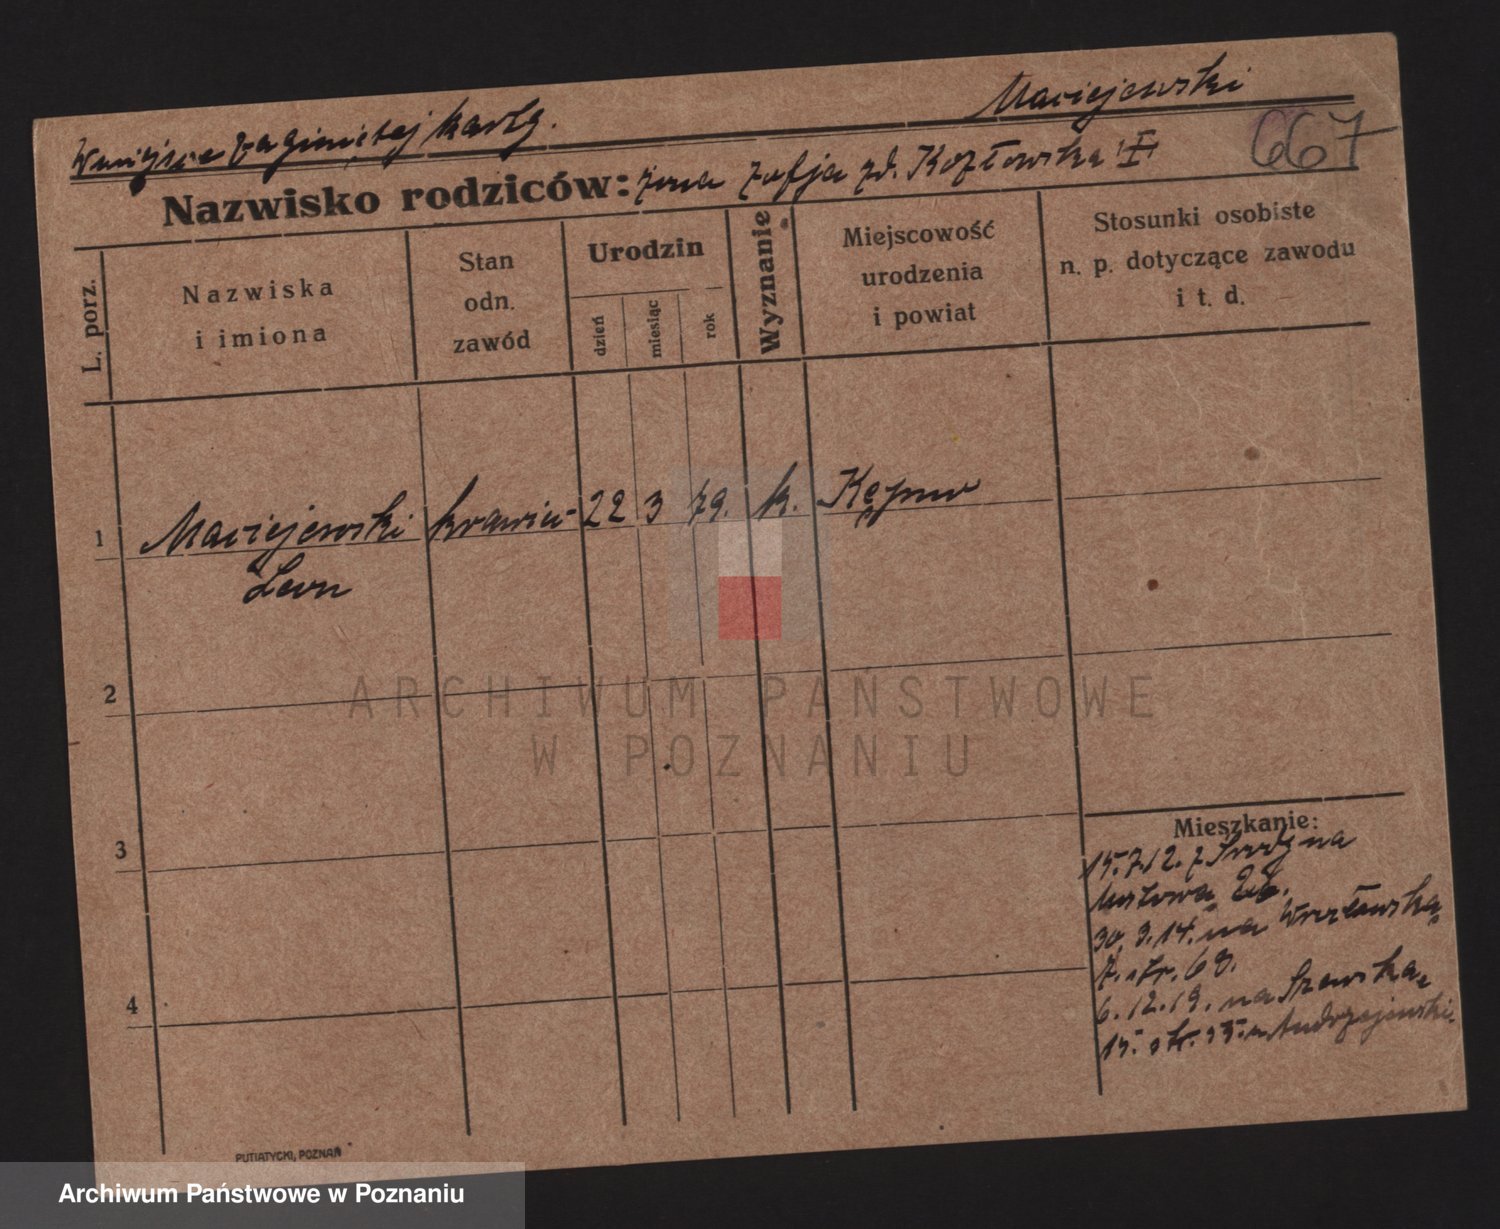 W miejsce zaginiętej karty.
Maciejewski
667
Nazwisko rodziców: żona Zofja zd. Kozłowska
L. porz.
Nazwiska
i imiona
Stan
odn.
zawód
Urodzin
dzień
miesiąc
rok
Wyznanie
Miejscowość
urodzenia
i powiat
Stosunki osobiste
n. p. dotyczące zawodu
i t. d.
1 Maciejewski krawiec 22 3 79. k. Kępno
Leon
2
3
4
Mieszkanie:
15.7.12. z na
Mostowa 28.
30.9.14. na Wrocławską
7. str. 68.
6.12.19. na Szewską
15. str. Andrzejewski.
PUTIATYCKI, POZNAŃ
ARCHIWUM PAŃSTWOWE
W POZNANIU
Archiwum Państwowe w Poznaniu